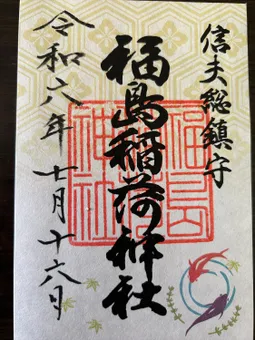 信夫総鎮守
福島稲荷神社
令和六年七月十六日
福島稲荷神社